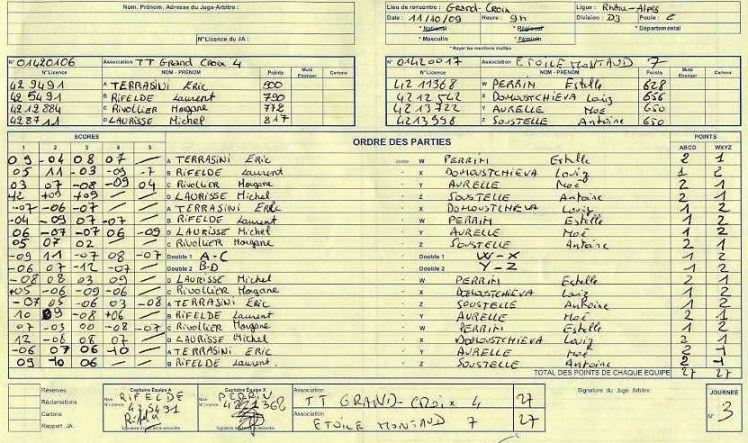 Nom, Prénom, Adresse du Juge-Arbitre :
N°Licence du JA :
Lieu de rencontre : Grand-Croix Ligue : Rhône-Alpes
Date : 11/10/09 Heure : 9h Division : D3 Poule :
* National * Régional * Départemental
* Masculin * Féminin
* Rayer les mentions inutiles
N° 01420106 Association TT Grand Croix 4
N°Licence NOM - PRÉNOM Points Cartons
429491 A TERRASINI Eric 800
425491 B RIFELDE Laurent 790
4212884 C Rivollier Morgane 772
428711 D LAURISSE Michel 817
N° 01420017 Association ETOILE MONTAUD 7
N°Licence NOM - PRÉNOM Points Cartons
4211368 W PERRIN Estelle 628
4212542 X DOMOUSTCHIEVA Loviz 656
4213722 Y AURELLE Moé 650
4213996 Z SOUSTELLE Antoine 650
SCORES ORDRE DES PARTIES POINTS
1 2 3 4 5 ABCD WXYZ
09 -04 08 07 / A TERRASINI Eric contre W PERRIN Estelle 2 1
05 11 -03 -09 -7 B RIFELDE Laurent - X DOMOUSTCHIEVA Loviz 1 2
03 07 -08 -09 04 C Rivollier Morgane - Y AURELLE Moé 2 1
D LAURISSE Michel - Z SOUSTELLE Antoine 2 1
-07 -06 -07 / / A TERRASINI Eric - X DOMOUSTCHIEVA Loviz 1 2
-04 -09 07 -07 / B RIFELDE Laurent - W PERRIN Estelle 1 2
06 -07 -07 06 -09 D LAURISSE Michel - Y AURELLE Moé 1 2
05 07 02 / / C Rivollier Morgane - Z SOUSTELLE Antoine 2 1
-09 11 -07 08 -07 Double 1 A-C - Double 1 W-X 1 2
-06 07 -12 -07 / Double 2 B-D - Double 2 Y-Z 1 2
-08 08 03 09 / D LAURISSE Michel - W PERRIN Estelle 2 1
+05 -06 -09 -06 / C Rivollier Morgane - X DOMOUSTCHIEVA Loviz 1 2
-07 05 -06 03 -08 A TERRASINI Eric - Z SOUSTELLE Antoine 1 2
10 09 -08 +06 / B RIFELDE Laurent - Y AURELLE Moé 2 1
07 -03 00 -08 -07 C Rivollier Morgane - W PERRIN Estelle 1 2
12 -06 08 07 / D LAURISSE Michel - X DOMOUSTCHIEVA Loviz 2 1
-06 07 06 -10 / A TERRASINI Eric - Y AURELLE Moé 2 1
09 -10 06 / B RIFELDE Laurent - Z SOUSTELLE Antoine 2 1
TOTAL DES POINTS DE CHAQUE EQUIPE 27 27
Réserves
Réclamations
Cartons
Rapport JA
Capitaine Equipe A
RIFELDE
N°Licence 425491
Capitaine Equipe X
PERRIN
N°Licence 4211368
Association TT GRAND-CROIX 4 27
Association ETOILE MONTAUD 7 27
Signature du Juge Arbitre
JOURNEE
N° 3